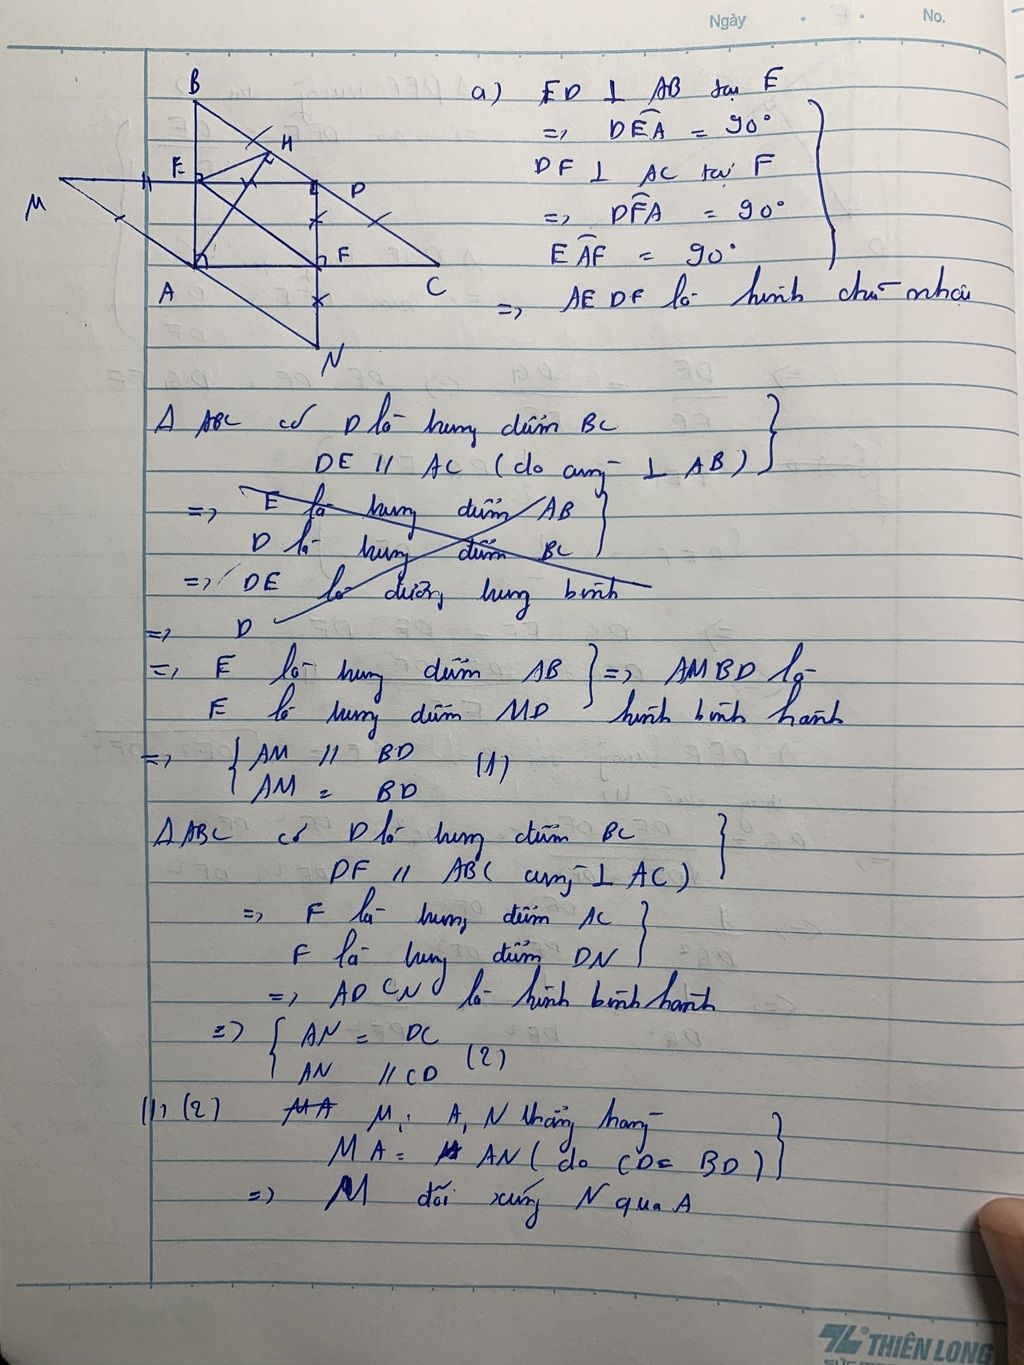 Ngày
No.
B
H
E
D
M
F
A
C
N
a) ED ⊥ AB tại E
=> DÊA = 90°
DF ⊥ AC tại F
=> DF̂A = 90°
EÂF = 90°
=> AEDF là hình chữ nhật
Δ ABC có D là trung điểm BC
DE // AC (do cùng ⊥ AB)
=> E là trung điểm AB
D là trung điểm BC
=> DE là đường trung bình
=> D
=> E là trung điểm AB => AMBD là
E là trung điểm MD hình bình hành
=> AM // BD
AM = BD (1)
Δ ABC có D là trung điểm BC
DF // AB (cùng ⊥ AC)
=> F là trung điểm AC
F là trung điểm DN
=> ADCN là hình bình hành
=> AN = DC
AN // CD (2)
(1), (2) MA M, A, N thẳng hàng
MA = AN (do CD = BD)
=> M đối xứng N qua A
THIÊN LONG